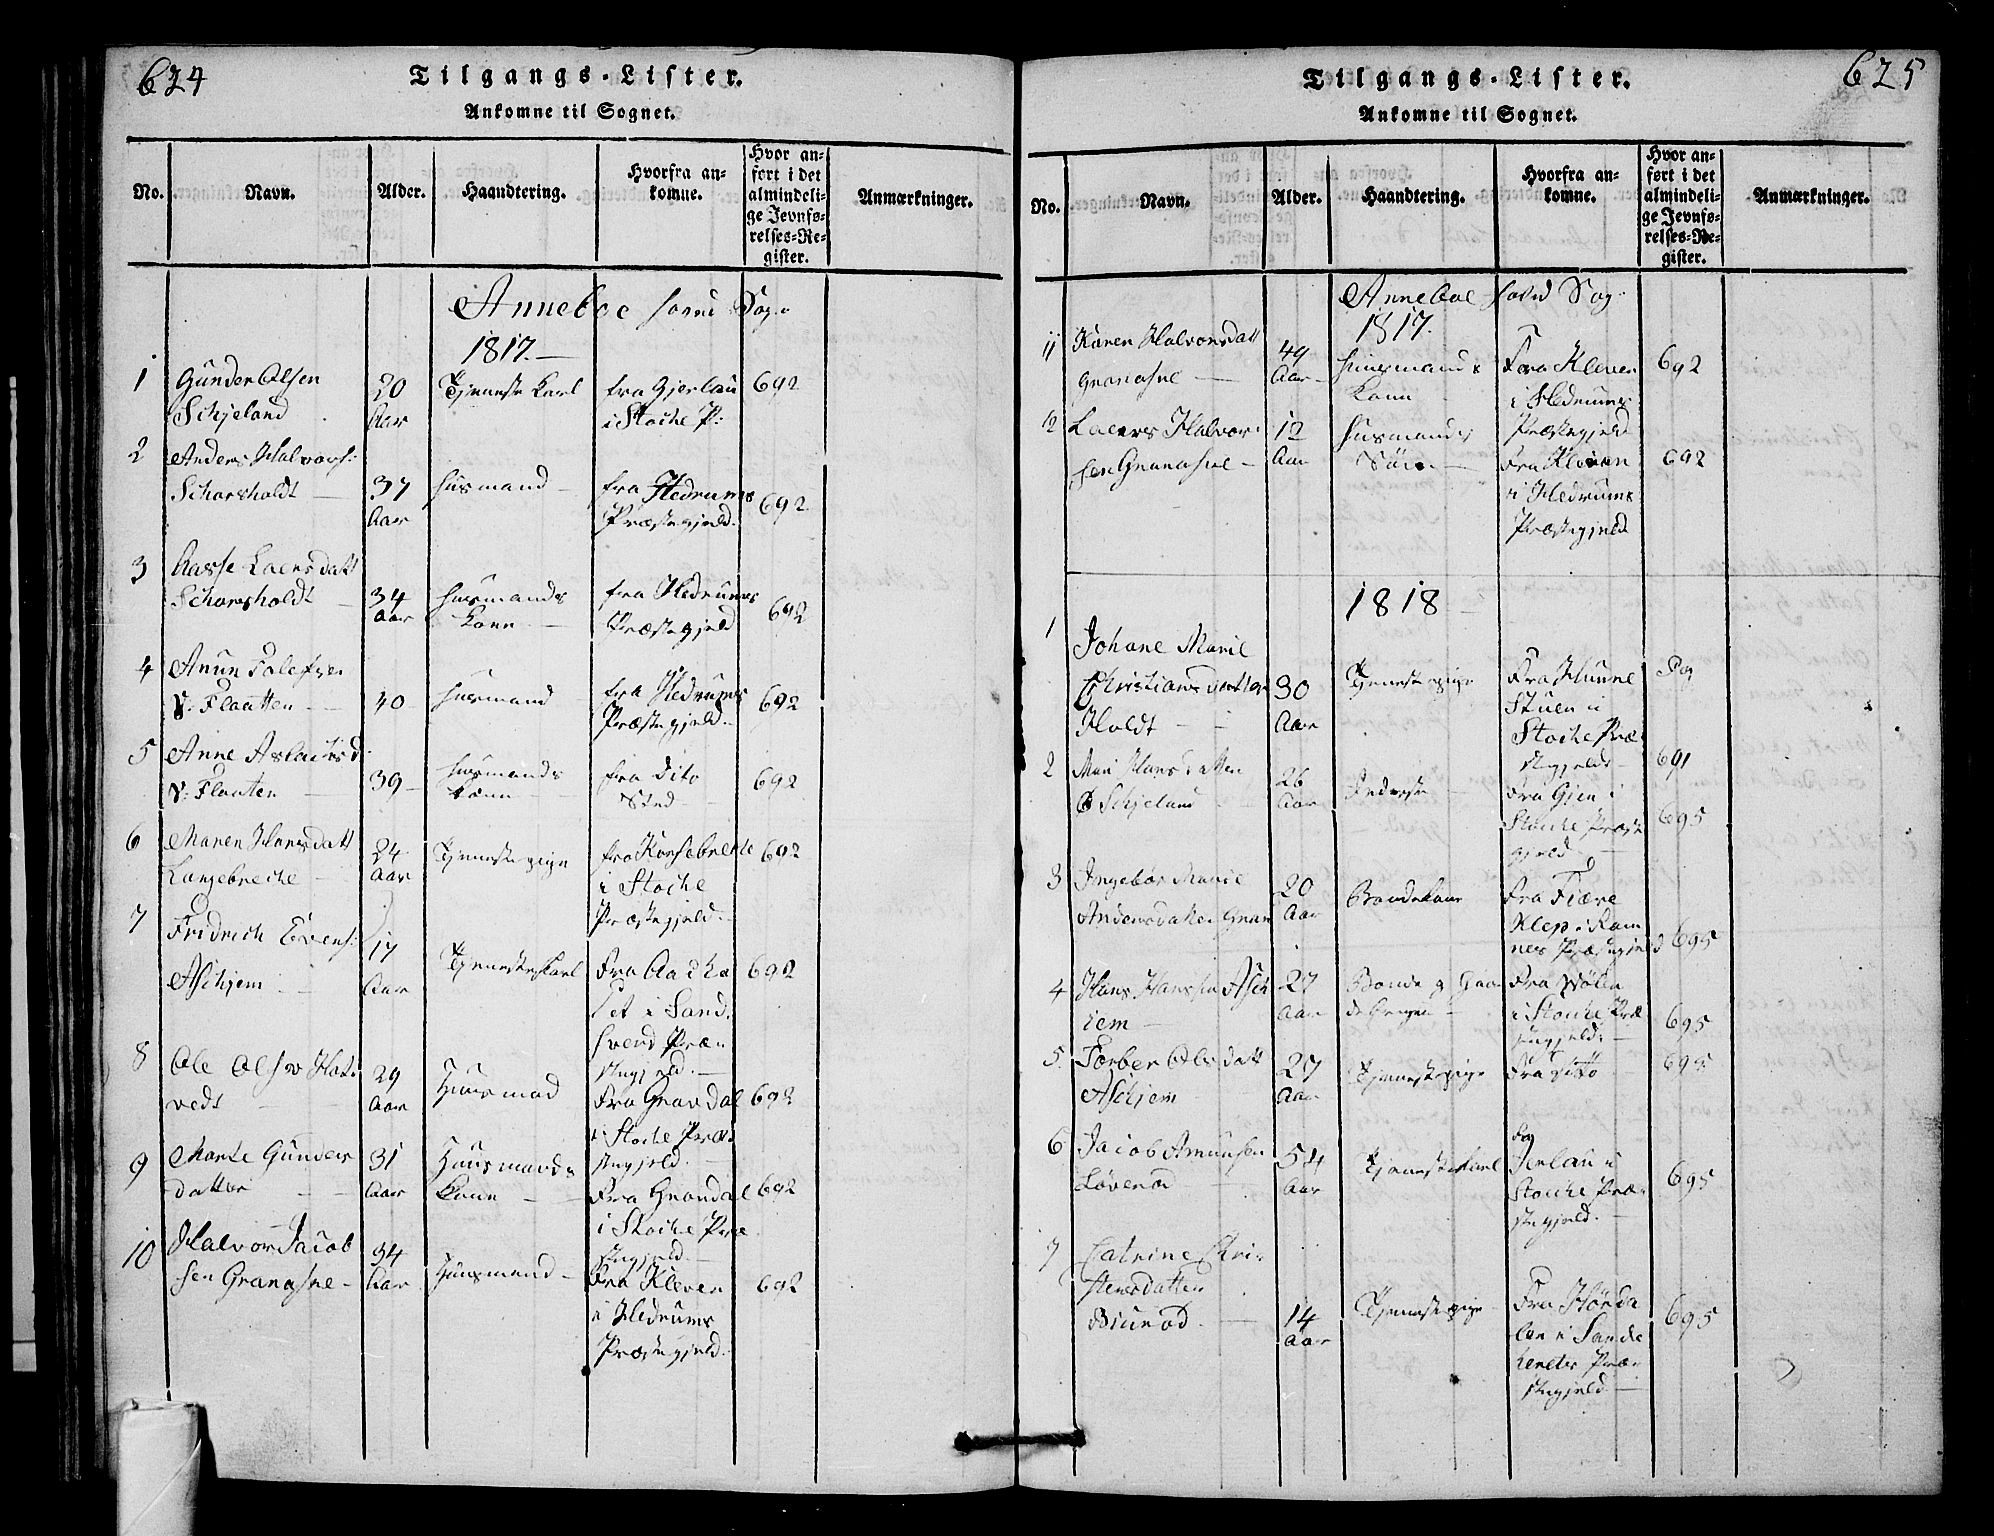 624
Tilgangs-Lister.
Ankomne til Sognet.
No.
Navn.
Alder.
Haandtering.
Hvorfra an-
komne.
Hvor an-
ført i det
almindeli-
ge Jevnfø-
relses-Re-
gister.
Anmærkninger.
Anneboe Sog.
1817.
1
Gunder Olsen
Schjeland
20
Aar
Tjeneste Karl
fra Gjerlau
i Stocke P:
692
2
Anders Halvors:
Schorsholdt
37
Aar
Husmand
fra Hedrums
Præstegjeld.
692
3
Aasse Laersdatt
Schorsholdt
34
Aar
Husmands
Kone
fra Hedrums
Præstegjeld
692
4
V: Flaatten
40
Husmand
fra Hedrums
Præstegjeld.
692
5
Anne Aslachsd
V: Flaaten
39
Husmands
Kone
fra dito
Sted
692
6
Maren Hansdatt
Langebreche
24
Aar
Tjenestepige
i Stocke
Præstegjeld.
692
7
Fridrich Evens:
Aschjem
17
Aar
Tjenestekarl
i Sand-
Præ-
stegjeld.
692
8
Ole Olsen
29
Aar
Huusmad
Fra Gravdal
i Stocke Præ-
stegjeld.
692
9
Marte Gunders
datter
31
Aar
Huusmands
Kone
Fra Gravdal
i Stocke Præ
stegjeld.
692
10
Halvor Jacob
sen Granasne
34
Aar
Huusmand
Fra Kleven
i Hedrums
Præstegjeld.
692
625
Tilgangs-Lister.
Ankomne til Sognet.
No.
Navn.
Alder.
Haandtering.
Hvorfra an-
komne.
Hvor an-
ført i det
almindeli-
ge Jevnfø-
relses-Re-
gister.
Anmærkninger.
Anneboe Sog
1817.
11
Karen Halvorsdatt
Granasne
49
Aar
Huusmands
Kone
Fra Kleven
i Hedrums
Præstegjeld
692
12
Laers Halvor
sen Granasne
12
Aar
Husmands
Søn
Fra Kleven
i Hedrums
Præstegjeld
692
1818
1
Johane Marie
Christiansdatter
Holdt
30
Aar
Tjenestepige
Stuen i
Stocke Præ
stegjeld
Pag
691
2
Mari Hansdatter
Schjeland
26
Aar
Inderste
Fra Gjen i
Stocke Præst
gjeld
695
3
Ingebor Marie
Andersdatter Gran
20
Aar
Bondekone
Klep i Ram
nes Præstegjeld
695
4
Hans Hansen Asch
iem
27
Aar
i Stocke Præ
stegjeld.
695
5
Torber Olsdatt
Aschjem
27
Aar
Tjenestepige
Fra dito
695
6
Jacob Amunsen
Løverød
54
Aar
Tjenestekarl
Fra
Jerlau i
Stocke Præ-
stegjeld.
695
7
Catrine Chri-
stensdatter
14
Aar
Tjenestepige
Fra Hønda
len i Sande
herets Præ-
stegjeld
695